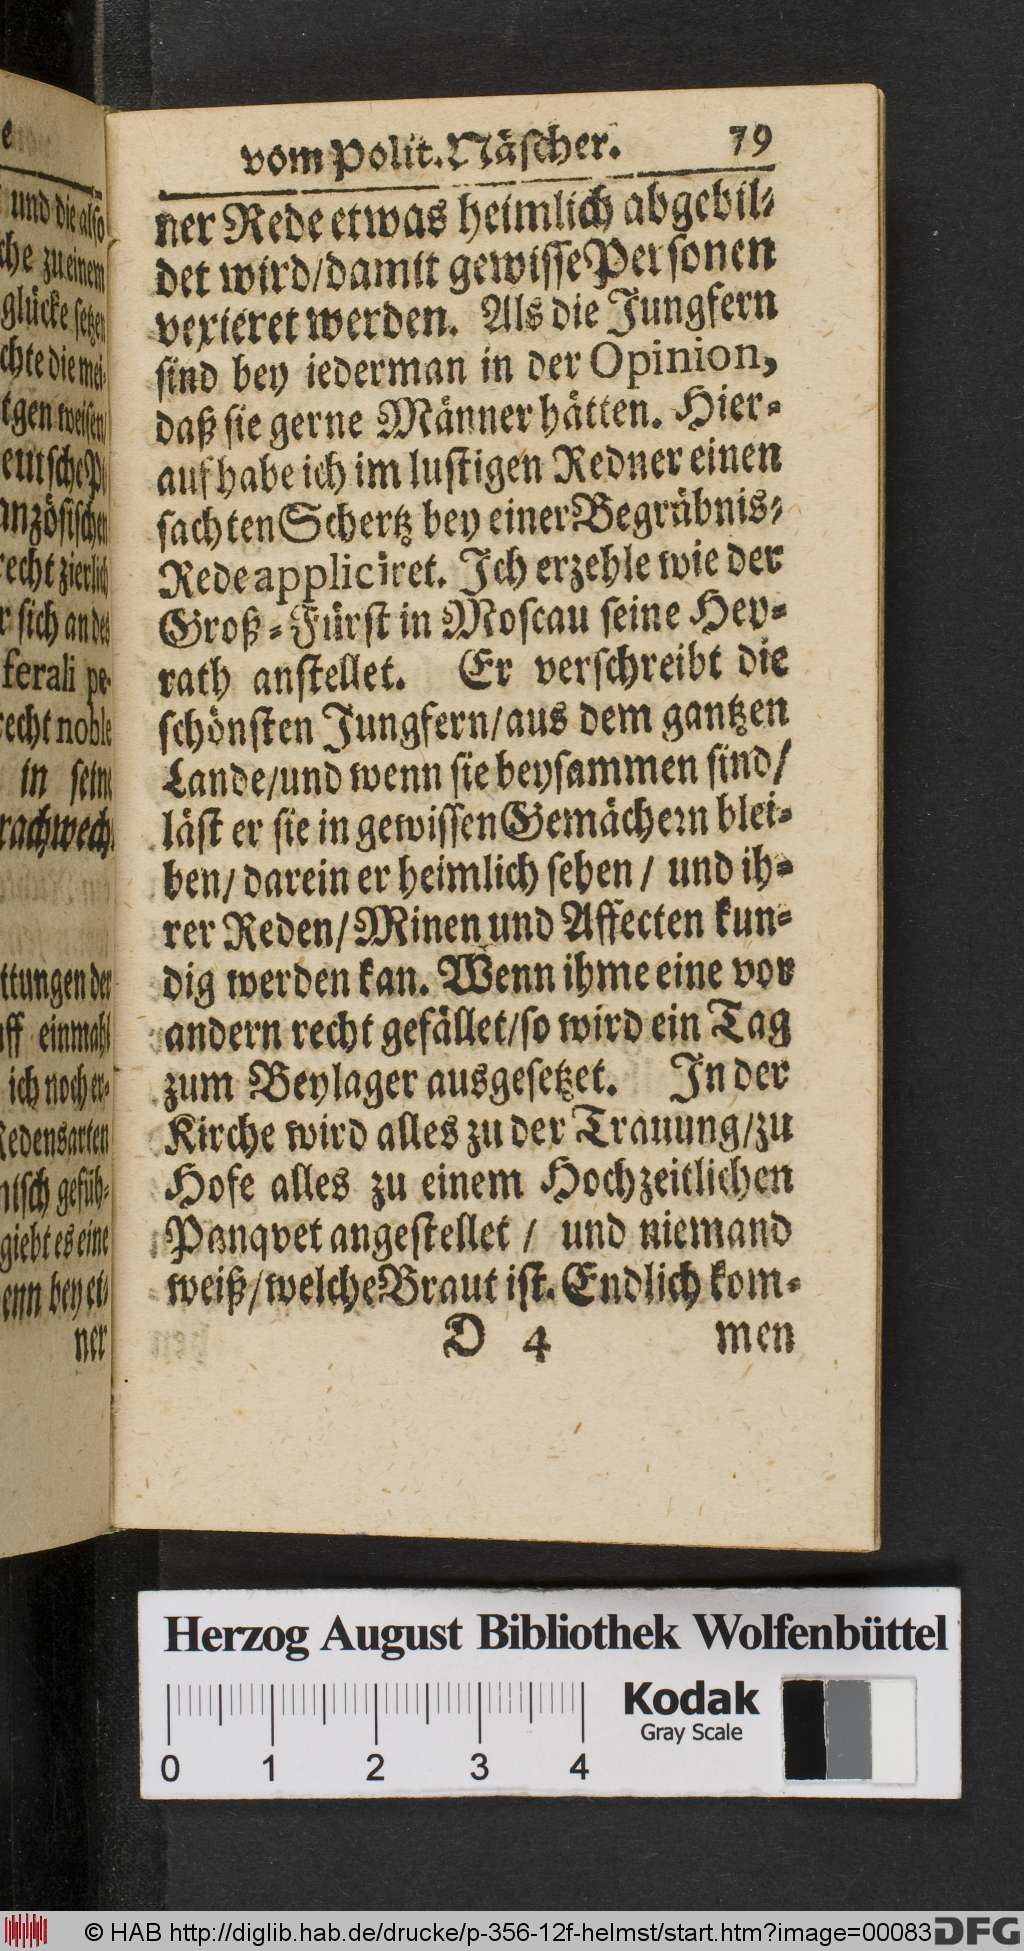 e
und die also
che zu einem
glücke setzen
chte die mei-
tgen weisen/
eutsche
anzösischen
recht zierlich
r sich an des
ferali pe-
recht noble
in seine
rachwech-
ttungen der
uff einmahl
ich noch er-
Redensarten
ntsch gefüh-
giebt es eine
enn bey et-
ner
vom Polit. Näscher. 79
ner Rede etwas heimlich abgebil-
det wird/damit gewisse Personen
vexieret werden. Als die Jungfern
sind bey iederman in der Opinion,
daß sie gerne Männer hätten. Hier-
auf habe ich im lustigen Redner einen
sachten Schertz bey einer Begräbnis-
Rede appliciret. Ich erzehle wie der
Groß-Fürst in Moscau seine Hey-
rath anstellet. Er verschreibt die
schönsten Jungfern/aus dem gantzen
Lande/und wenn sie beysammen sind/
läst er sie in gewissen Gemächern blei-
ben/ darein er heimlich sehen/ und ih-
rer Reden/Minen und Affecten kun-
dig werden kan. Wenn ihme eine vor
andern recht gefället/so wird ein Tag
zum Beylager ausgesetzet. In der
Kirche wird alles zu der Trauung/zu
Hofe alles zu einem Hochzeitlichen
Panqvet angestellet/ und niemand
weiß/welche Braut ist. Endlich kom-
D 4 men
Herzog August Bibliothek Wolfenbüttel
Kodak
Gray Scale
0 1 2 3 4
© HAB http://diglib.hab.de/drucke/p-356-12f-helmst/start.htm?image=00083
DFG